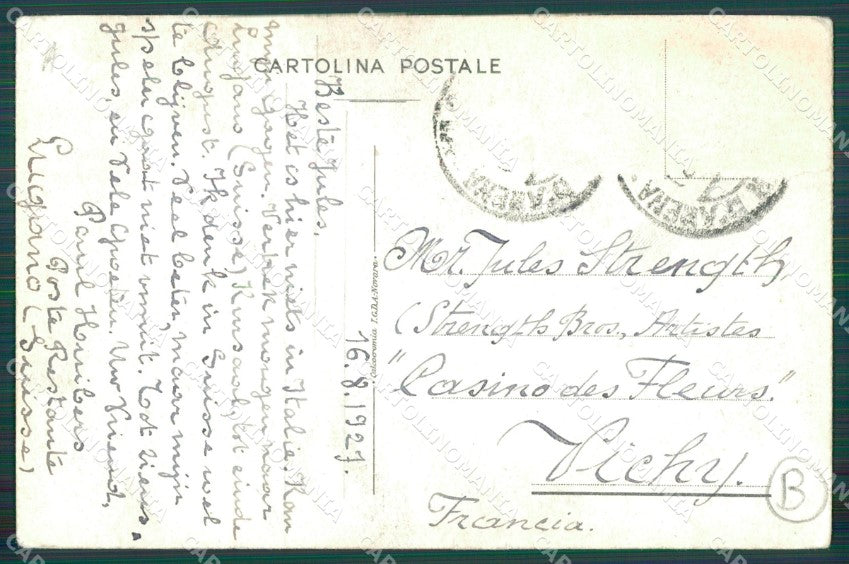 CARTOLINA POSTALE
Beste Jules,
Het is hier niets in Italie. Kan
mijn Gagen. Vertrek morgen naar
Lugano (Suisse) Kursaal, tot einde
August. Ik denk in Suisse wel
te blijven. Veel beter, maar mijn
speler gaat niet vooruit. Tot ziens
Jules, en Vele Groeten. Uw Vriend,
Paul
Poste Restante
Lugano (Suisse)
16.8.1927.
Calcocromia I.G.D.A. Novara
D'ARENA
D'ARENA
Mr. Jules Strength
(Strength Bros., Artistes
"Casino des Fleurs."
Vichy.
Francia.
B
CARTOLINOMANIA